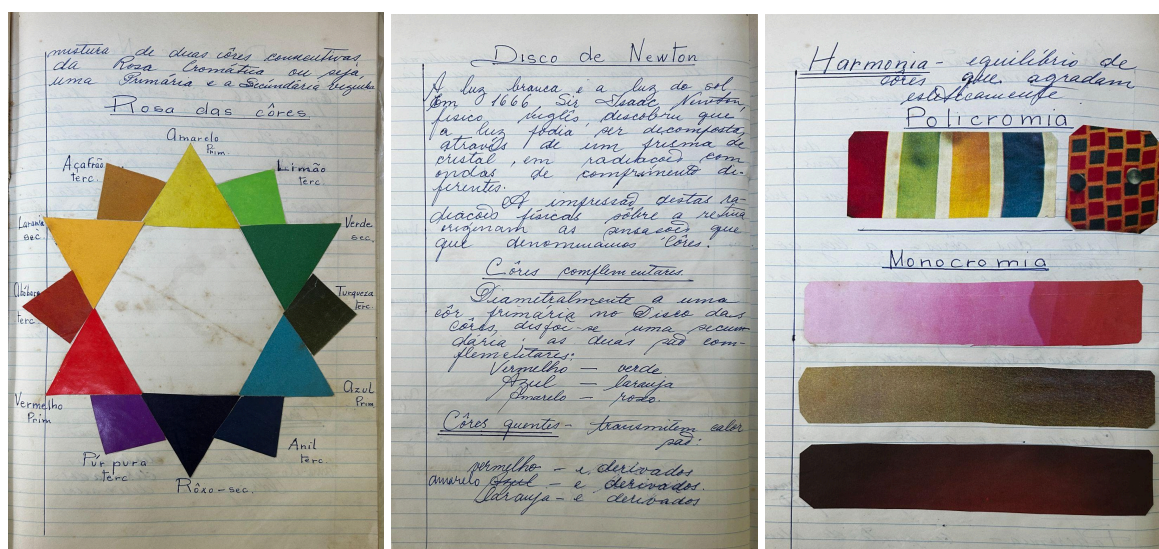 mistura de duas côres consecutivas
da Rosa Cromática ou seja,
uma Primária e a Secundária vizinha
Rosa das côres
Amarelo
Prim.
Açafrão
terc.
Limão
terc
Laranja
sec.
Verde
sec.
terc.
Turqueza
terc.
Vermelho
Prim
Azul
Prim
Púrpura
terc
Anil
terc.
Rôxo-sec.
Disco de Newton
A luz branca é a luz do sol.
Em 1666, Sir Isaac Newton,
físico inglês descobriu que
a luz podia ser decomposta,
através de um prisma de
cristal, em radiações com
ondas de comprimento di-
ferentes.
A impressão destas ra-
diações físicas sôbre a retina
originam as sensações que
que denominamos Côres.
Côres complementares.
Diametralmente a uma
côr primária no Disco das
côres, dispõi-se uma secun
dária; as duas são com-
plementares:
Vermelho — verde
Azul — laranja
Amarelo — roxo.
Côres quentes - transmitem calor
são:
vermelho — e derivados
amarelo Azul — e derivados.
laranja — e derivados
Harmonia - equilíbrio de
côres que agradam
esteticamente.
Policromia
Monocromia